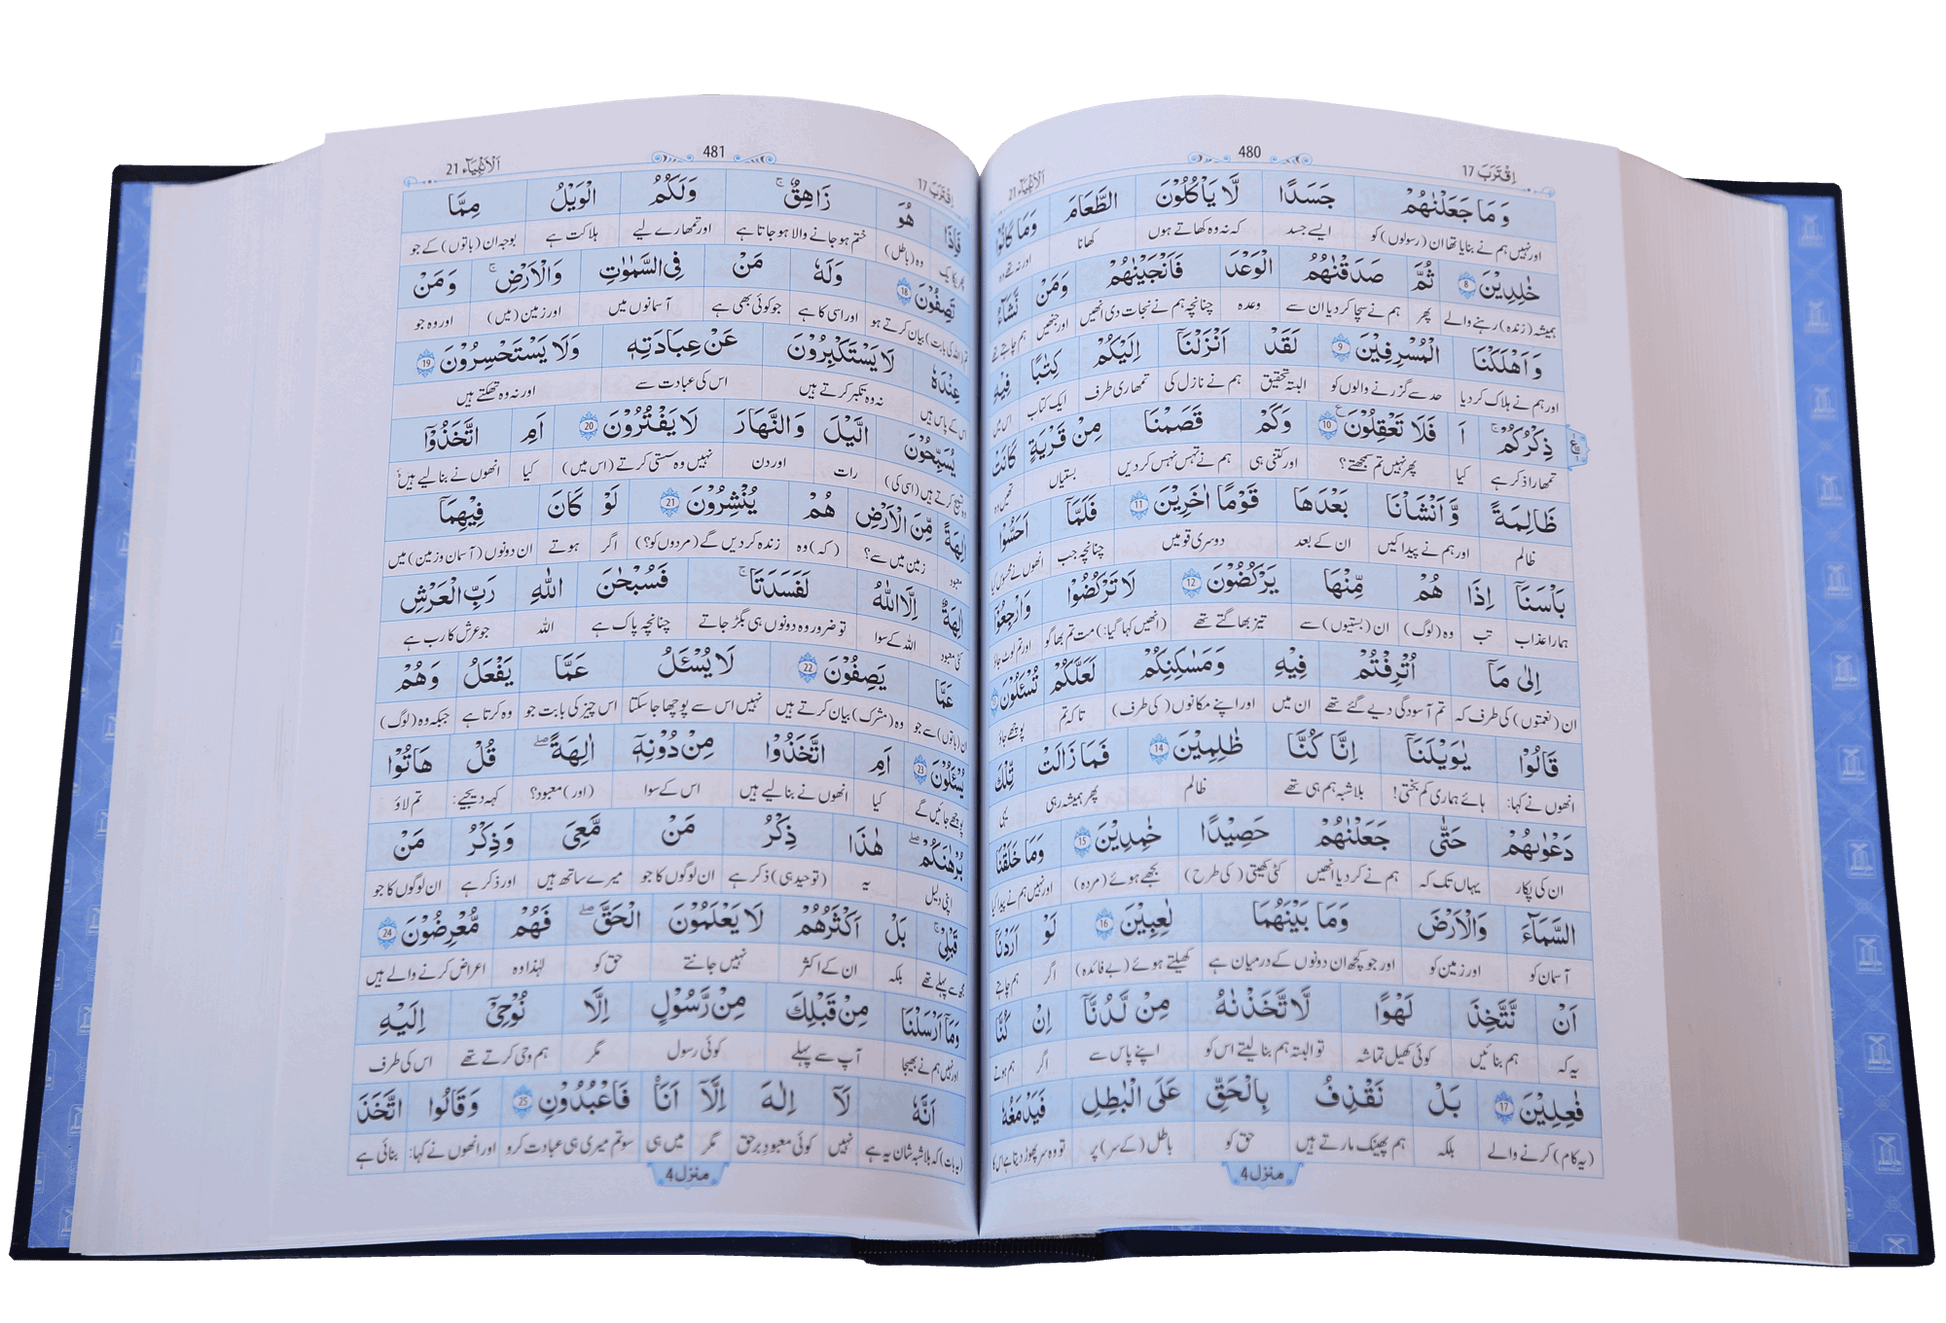 اِقْتَرَبَ 17
480
اَلْاَنْۢبِيَآء 21
وَمَا جَعَلْنٰهُمْ جَسَدًا لَّا يَاْكُلُوْنَ الطَّعَامَ وَمَا كَانُوْا
اور نہیں ہم نے بنایا تھا ان (رسولوں) کو ایسے جسد کہ نہ وہ کھاتے ہوں کھانا اور نہ تھے وہ
خٰلِدِيْنَ 8 ثُمَّ صَدَقْنٰهُمُ الْوَعْدَ فَاَنْجَيْنٰهُمْ وَمَنْ نَّشَآءُ
ہمیشہ (زندہ) رہنے والے پھر ہم نے سچا کر دیا ان سے وعدہ چنانچہ ہم نے نجات دی انھیں اور جنھیں ہم چاہتے تھے
وَاَهْلَكْنَا الْمُسْرِفِيْنَ 9 لَقَدْ اَنْزَلْنَآ اِلَيْكُمْ كِتٰبًا فِيْهِ
اور ہم نے ہلاک کر دیا حد سے گزرنے والوں کو البتہ تحقیق ہم نے نازل کی تمھاری طرف ایک کتاب اس میں
ذِكْرُكُمْ ۚ اَ فَلَا تَعْقِلُوْنَ 10 وَكَمْ قَصَمْنَا مِنْ قَرْيَةٍ كَانَتْ
تمھارا ذکر ہے کیا پھر نہیں تم سمجھتے؟ اور کتنی ہی ہم نے تہس نہس کر دیں بستیاں تھیں وہ
ظَالِمَةً وَّاَنْشَاْنَا بَعْدَهَا قَوْمًا اٰخَرِيْنَ 11 فَلَمَّآ اَحَسُّوْا
ظالم اور ہم نے پیدا کیں ان کے بعد دوسری قومیں چنانچہ جب انھوں نے محسوس کیا
بَاْسَنَآ اِذَا هُمْ مِّنْهَا يَرْكُضُوْنَ 12 لَا تَرْكُضُوْا وَارْجِعُوْٓا
ہمارا عذاب تب وہ (لوگ) ان (بستیوں) سے تیز بھاگتے تھے (انھیں کہا گیا:) مت تم بھاگو اور تم لوٹ جاؤ
اِلٰى مَآ اُتْرِفْتُمْ فِيْهِ وَمَسٰكِنِكُمْ لَعَلَّكُمْ تُسْـَٔلُوْنَ 13
ان (نعمتوں) کی طرف کہ تم آسودگی دیے گئے تھے ان میں اور اپنے مکانوں (کی طرف) تاکہ تم پوچھے جاؤ
قَالُوْا يٰوَيْلَنَآ اِنَّا كُنَّا ظٰلِمِيْنَ 14 فَمَا زَالَتْ تِّلْكَ
انھوں نے کہا: ہائے ہماری کم بختی! بلاشبہ ہم ہی تھے ظالم پھر ہمیشہ رہی یہی
دَعْوٰىهُمْ حَتّٰى جَعَلْنٰهُمْ حَصِيْدًا خٰمِدِيْنَ 15 وَمَا خَلَقْنَا
ان کی پکار یہاں تک کہ ہم نے کر دیا انھیں کٹی کھیتی (کی طرح) بجھے ہوئے (مردہ) اور نہیں ہم نے پیدا کیا
السَّمَآءَ وَالْاَرْضَ وَمَا بَيْنَهُمَا لٰعِبِيْنَ 16 لَوْ اَرَدْنَآ
آسمان کو اور زمین کو اور جو کچھ ان دونوں کے درمیان ہے کھیلتے ہوئے (بے فائدہ) اگر ہم چاہتے
اَنْ نَّتَّخِذَ لَهْوًا لَّاتَّخَذْنٰهُ مِنْ لَّدُنَّآ اِنْ كُنَّا
یہ کہ ہم بنائیں کوئی کھیل تماشہ تو البتہ ہم بنا لیتے اس کو اپنے پاس سے اگر ہم ہوتے
فٰعِلِيْنَ 17 بَلْ نَقْذِفُ بِالْحَقِّ عَلَى الْبٰطِلِ فَيَدْمَغُهٗ
(یہ کام) کرنے والے بلکہ ہم پھینک مارتے ہیں حق کو باطل (کے سر) پر تو وہ سر پھوڑ دیتا ہے اس کا
منزل 4
اِقْتَرَبَ 17
481
اَلْاَنْۢبِيَآء 21
فَاِذَا هُوَ زَاهِقٌ ۚ وَلَكُمُ الْوَيْلُ مِمَّا
پھر یکایک وہ (باطل) ختم ہو جانے والا ہو جاتا ہے اور تمھارے لیے ہلاکت ہے بوجہ ان (باتوں) کے جو
تَصِفُوْنَ 18 وَلَهٗ مَنْ فِي السَّمٰوٰتِ وَالْاَرْضِ ۚ وَمَنْ
تم (اللہ کی بابت) بیان کرتے ہو اور اسی کا ہے جو کوئی بھی ہے آسمانوں میں اور زمین (میں) اور وہ جو
عِنْدَهٗ لَا يَسْتَكْبِرُوْنَ عَنْ عِبَادَتِهٖ وَلَا يَسْتَحْسِرُوْنَ 19
اس کے پاس ہیں نہ وہ تکبر کرتے ہیں اس کی عبادت سے اور نہ وہ تھکتے ہیں
يُسَبِّحُوْنَ الَّيْلَ وَالنَّهَارَ لَا يَفْتُرُوْنَ 20 اَمِ اتَّخَذُوْٓا
وہ تسبیح کرتے ہیں (اسی کی) رات اور دن نہیں وہ سستی کرتے (اس میں) کیا انھوں نے بنا لیے ہیں
اٰلِهَةً مِّنَ الْاَرْضِ هُمْ يُنْشِرُوْنَ 21 لَوْ كَانَ فِيْهِمَآ
معبود زمین میں سے؟ (کہ) وہ زندہ کر دیں گے (مردوں کو؟) اگر ہوتے ان دونوں (آسمان و زمین) میں
اٰلِهَةٌ اِلَّا اللّٰهُ لَفَسَدَتَا ۚ فَسُبْحٰنَ اللّٰهِ رَبِّ الْعَرْشِ
کئی معبود اللہ کے سوا تو ضرور وہ دونوں ہی بگڑ جاتے چنانچہ پاک ہے اللہ جو عرش کا رب ہے
عَمَّا يَصِفُوْنَ 22 لَا يُسْـَٔلُ عَمَّا يَفْعَلُ وَهُمْ
ان (باتوں) سے جو وہ (مشرک) بیان کرتے ہیں نہیں اس سے پوچھا جا سکتا اس چیز کی بابت جو وہ کرتا ہے جبکہ وہ (لوگ)
يُسْـَٔلُوْنَ 23 اَمِ اتَّخَذُوْا مِنْ دُوْنِهٖٓ اٰلِهَةً ۖ قُلْ هَاتُوْا
پوچھے جائیں گے کیا انھوں نے بنا لیے ہیں اس کے سوا (اور) معبود؟ کہہ دیجیے: تم لاؤ
بُرْهَانَكُمْ ۖ هٰذَا ذِكْرُ مَنْ مَّعِيَ وَذِكْرُ مَنْ
اپنی دلیل یہ (توحید ہی) ذکر ہے ان لوگوں کا جو میرے ساتھ ہیں اور ذکر ہے ان لوگوں کا جو
قَبْلِيْ ۗ بَلْ اَكْثَرُهُمْ لَا يَعْلَمُوْنَ الْحَقَّ ۖ فَهُمْ مُّعْرِضُوْنَ 24
مجھ سے پہلے تھے بلکہ ان کے اکثر نہیں جانتے حق کو لہٰذا وہ اعراض کرنے والے ہیں
وَمَآ اَرْسَلْنَا مِنْ قَبْلِكَ مِنْ رَّسُوْلٍ اِلَّا نُوْحِيْٓ اِلَيْهِ
اور نہیں ہم نے بھیجا آپ سے پہلے کوئی رسول مگر ہم وحی کرتے تھے اس کی طرف
اَنَّهٗ لَآ اِلٰهَ اِلَّآ اَنَا فَاعْبُدُوْنِ 25 وَقَالُوا اتَّخَذَ
(یہ بات) کہ بلاشبہ شان یہ ہے نہیں کوئی معبود برحق مگر میں ہی سو تم میری ہی عبادت کرو اور انھوں نے کہا: بنائی ہے
منزل 4